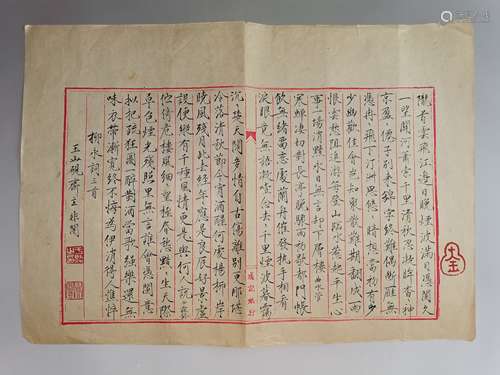 隴首雲飛江邊日晚煙波滿目憑闌久
一望關河蕭索千里清秋忍凝眸杳々神
京盈々仙子別來錦字終難偶斷雁無
憑冉々飛下汀洲思悠々暗想當初有多
少幽歡佳會豈知聚散難期翻成雨
恨雲愁阻追遊每登山臨水惹起平生心
事一場消黯永日無言却下層樓 曲玉管
寒蟬淒切對長亭晚驟雨初歇都門帳
飲無緒留戀處蘭舟催發執手相看
淚眼竟無語凝噎念去去千里煙波暮靄
沉々楚天闊多情自古傷離別更那堪
冷落清秋節今宵酒醒何處楊柳岸
曉風殘月此去經年應是良辰好景虛
設便縱有千種風情更與何人說
佇倚危樓風細々望極春愁黯々生天際
草色煙光殘照里無言誰會憑闌意
擬把疏狂圖一醉對酒當歌強樂還無
味衣帶漸寬終不悔為伊消得人憔悴
柳永詞三首
玉山硯齋主